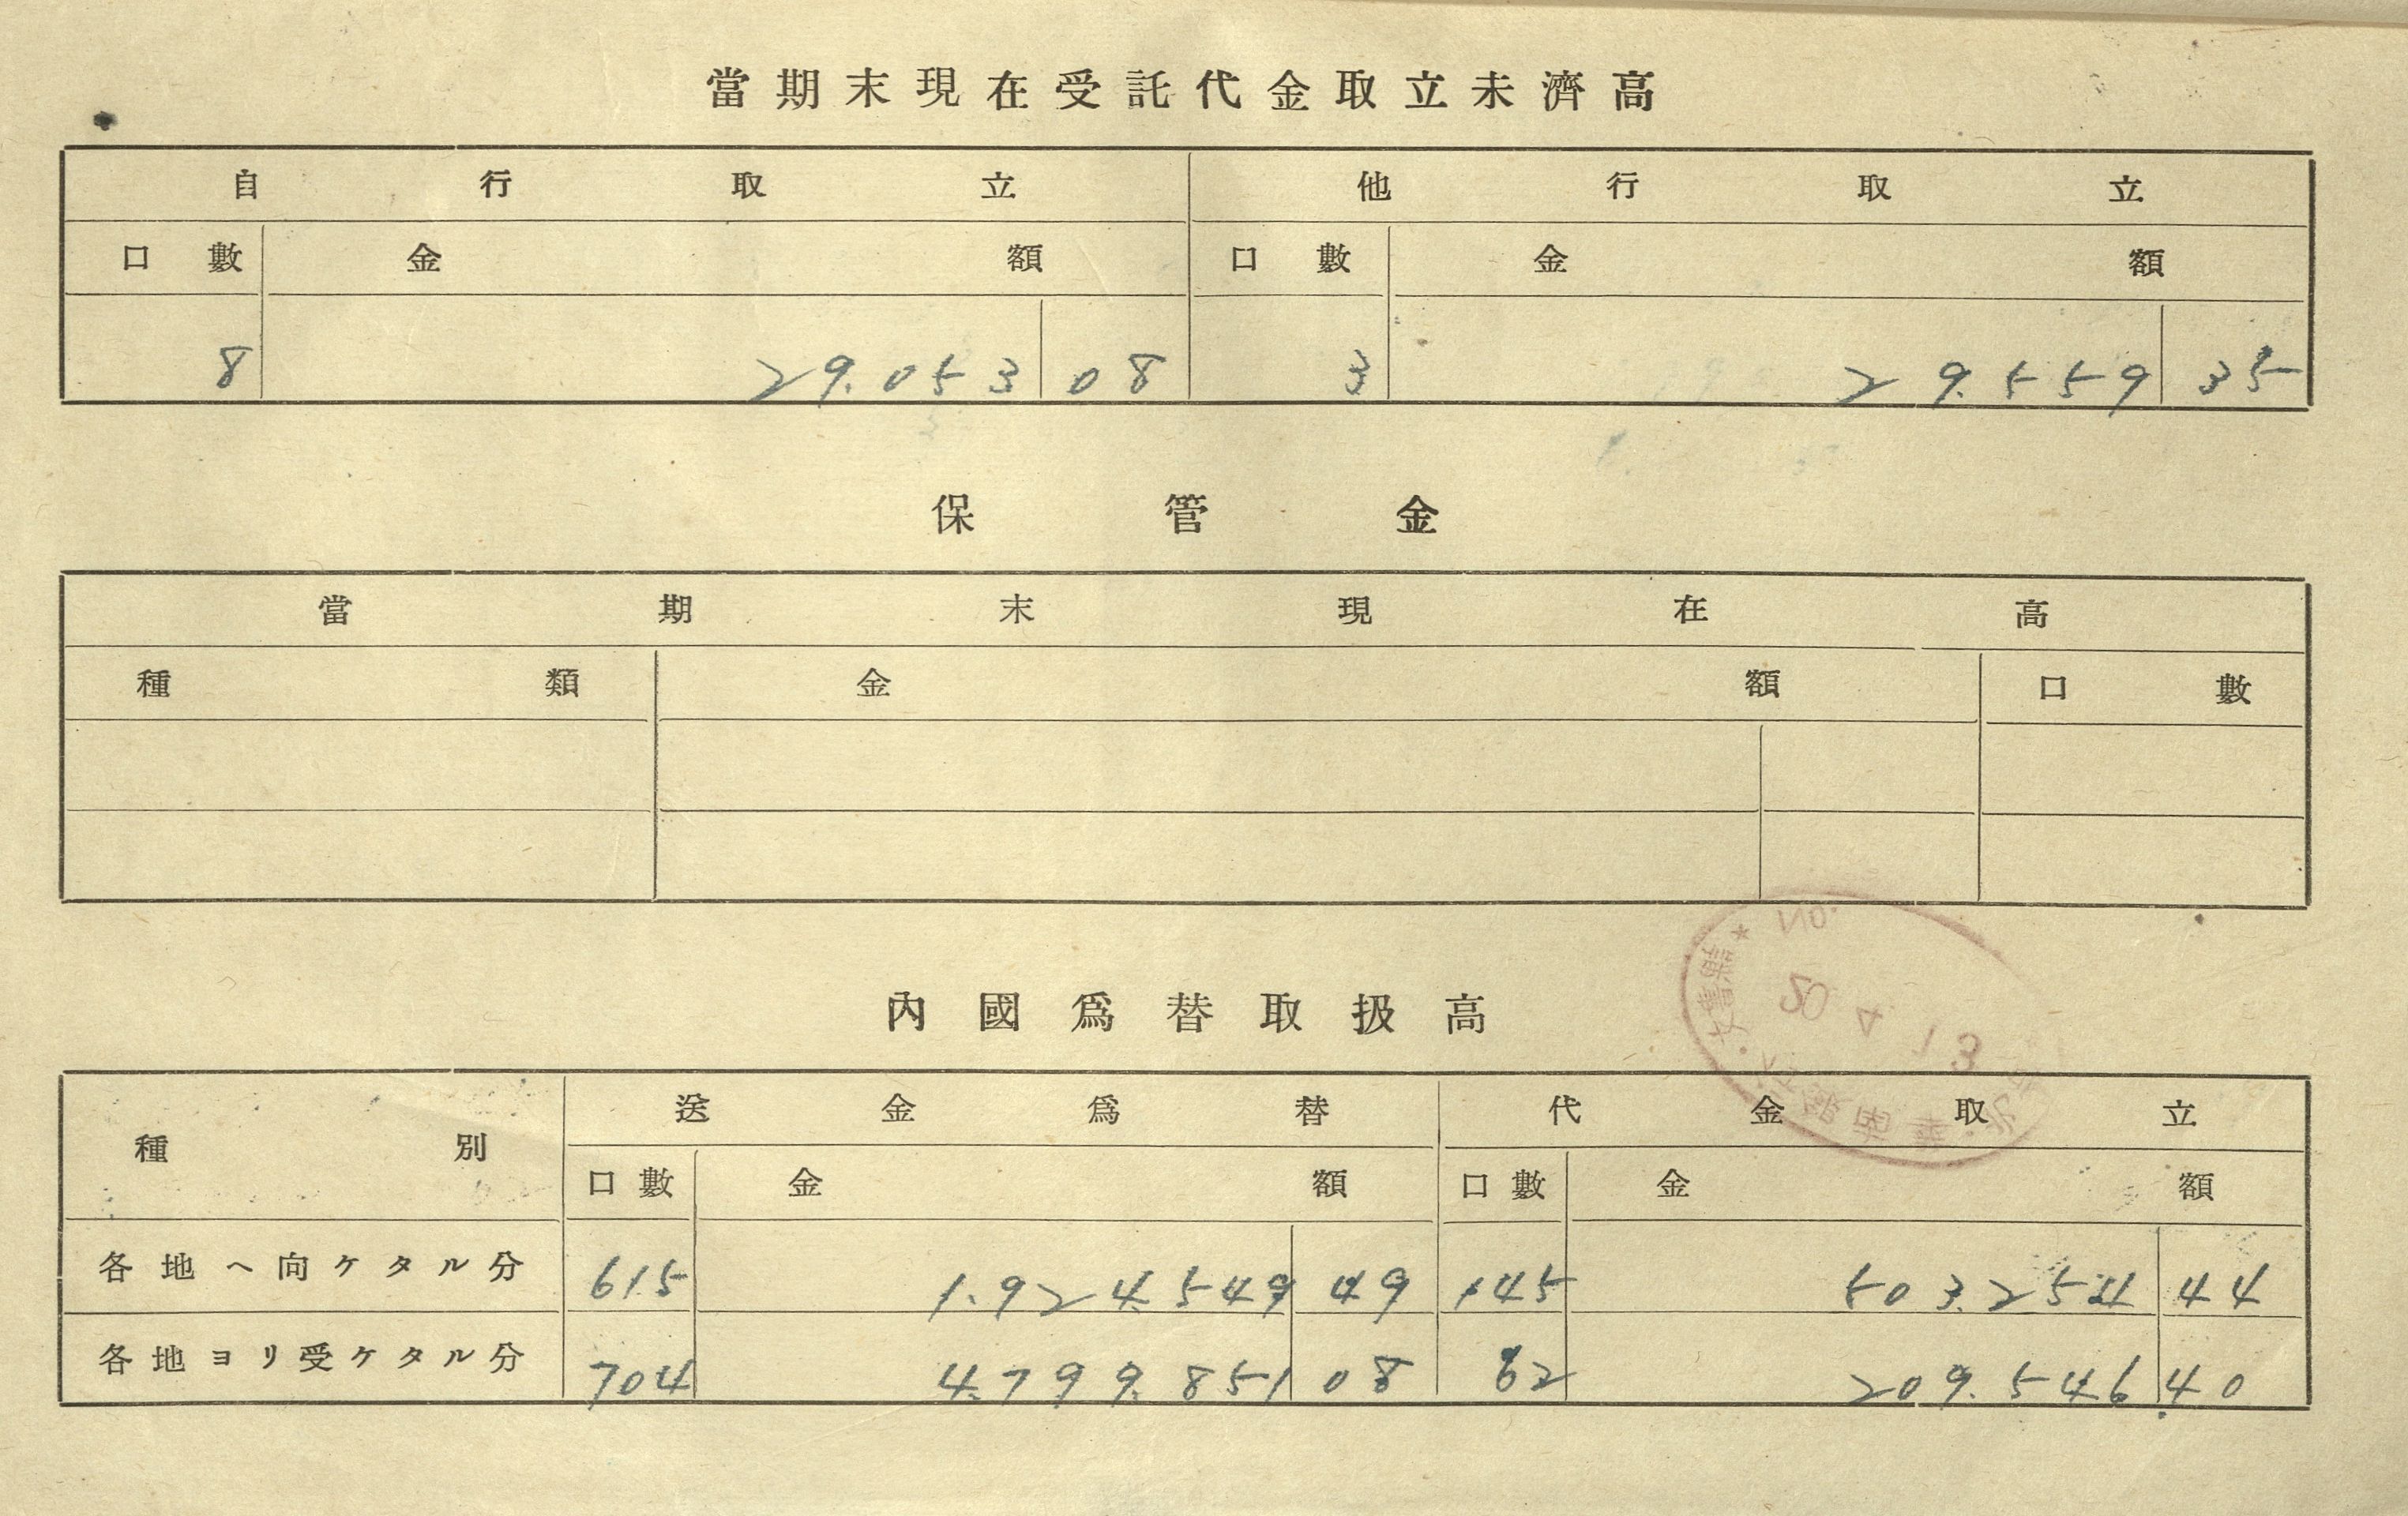 當期末現在受託代金取立未濟高
自行取立 他行取立
口數 金額 口數 金額
8 29.053 08 3 29.559 35
保管金
當期末現在高
種類 金額 口數
No.
內國爲替取扱高
20 4 13
種別 送金爲替 代金取立
口數 金額 口數 金額
各地ヘ向ケタル分 615 1.924.549 49 145 503.254 44
各地ヨリ受ケタル分 704 4.799.851 08 62 209.546 40